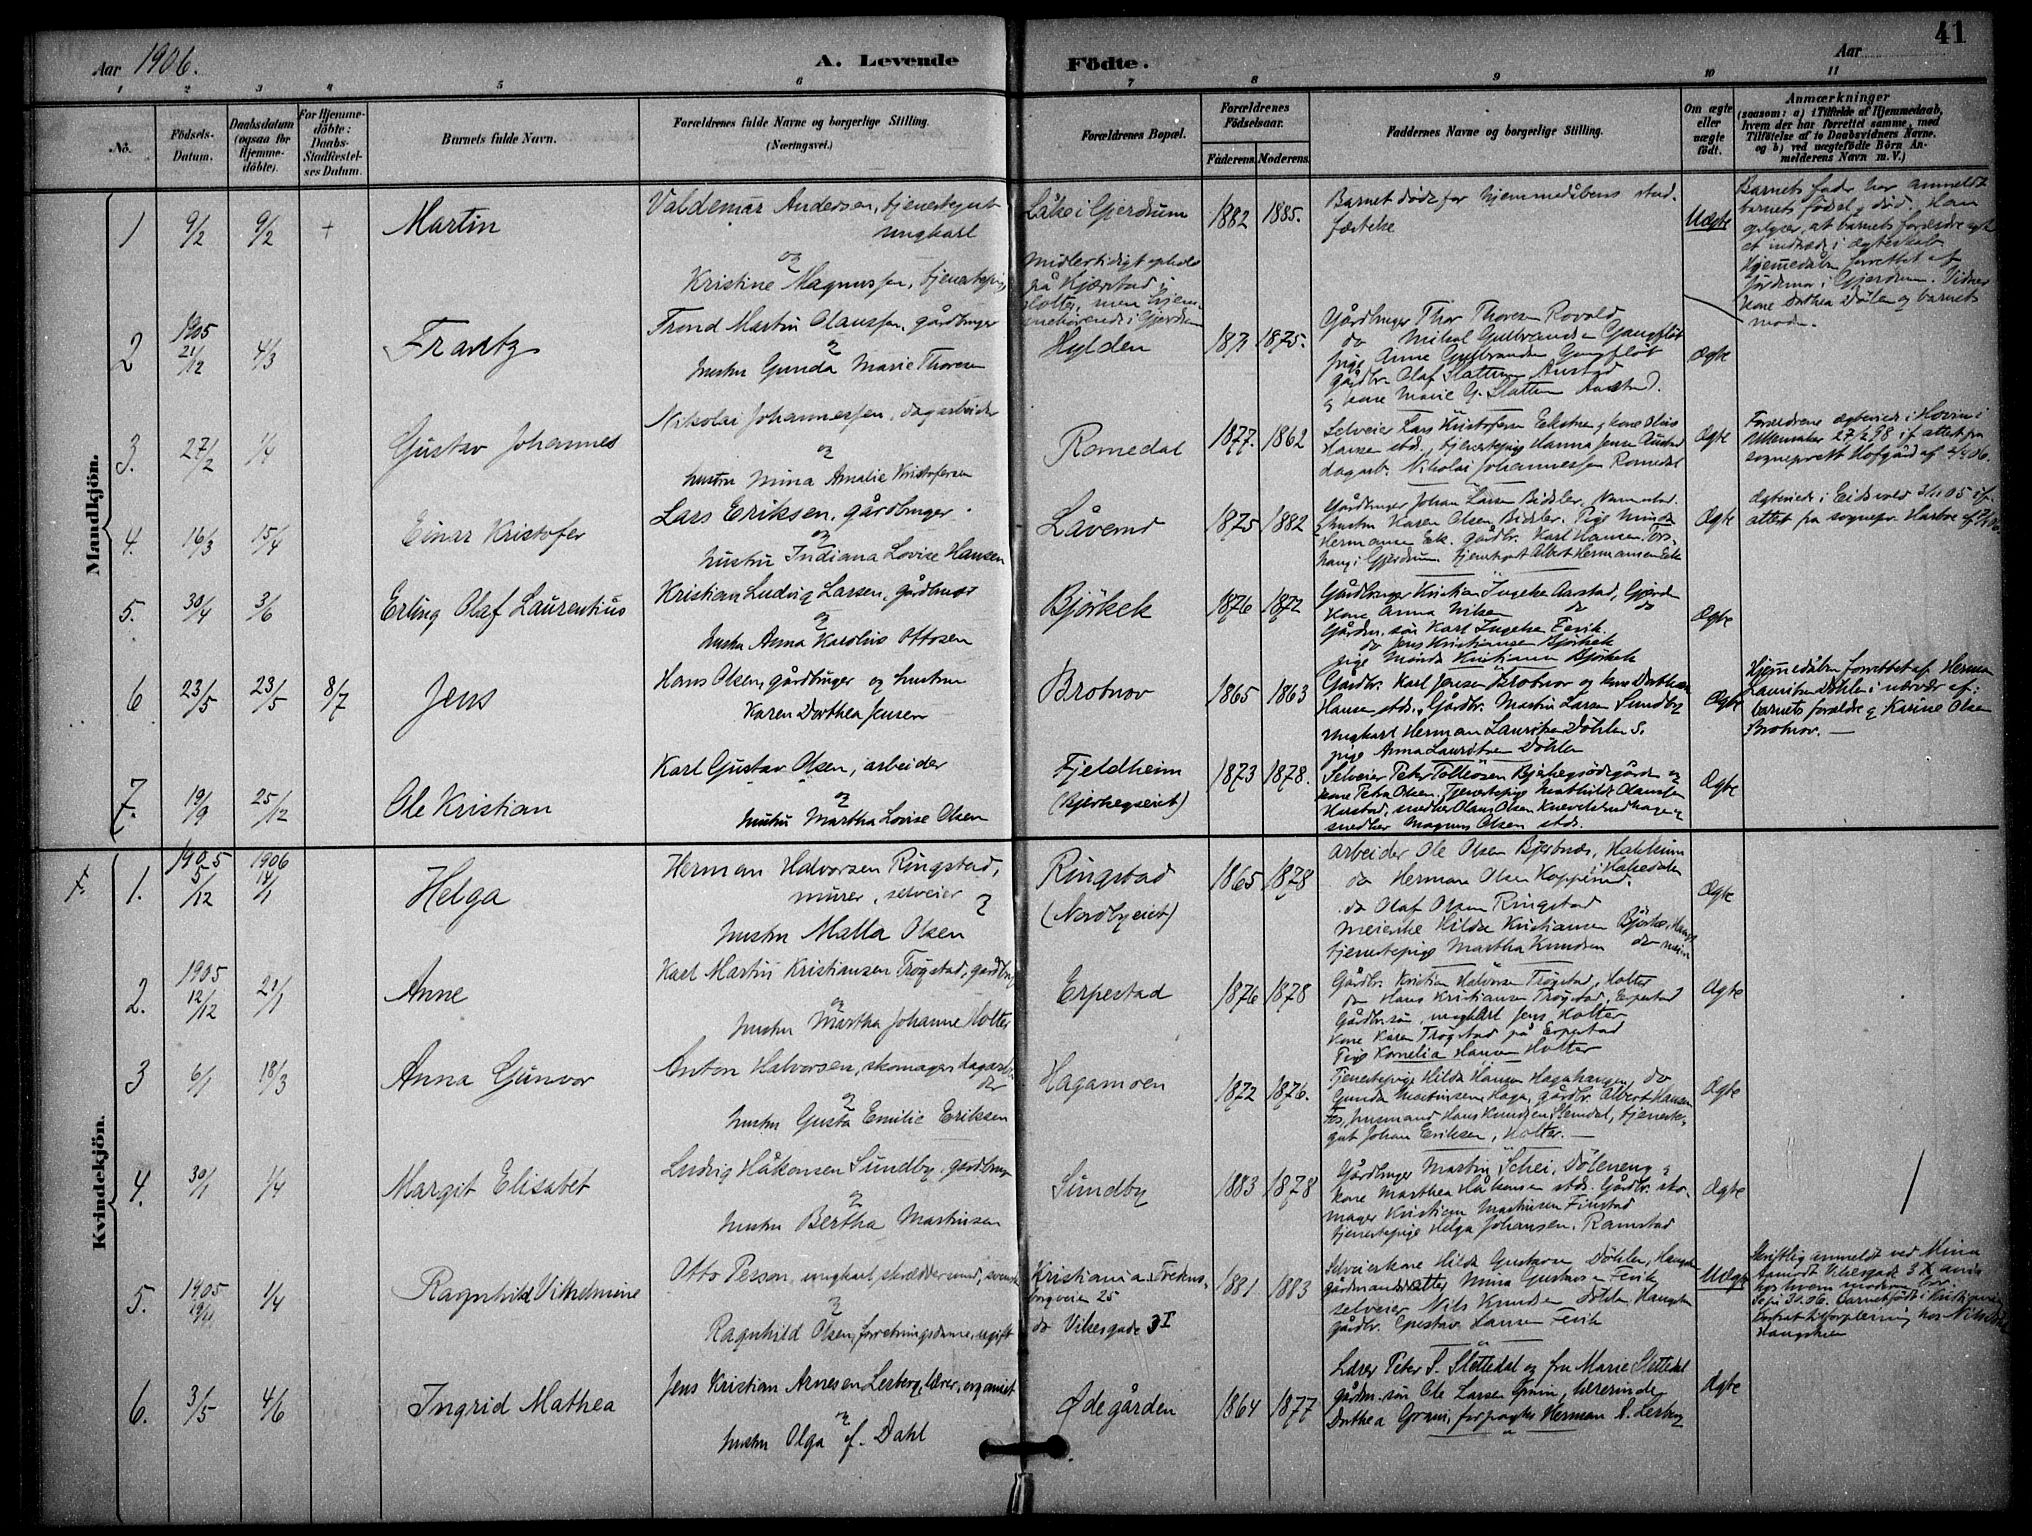 Aar 1906.
A. Levende Födte.
Aar
41
1 2 3 4 5 6 7 8 9 10 11
No.
Födsels-Datum.
Daabsdatum (ogsaa for Hjemme-döbte).
For Hjemme-döbte: Daabs-Stadfæstel-ses Datum.
Barnets fulde Navn.
Forældrenes fulde Navne og borgerlige Stilling. (Næringsvei.)
Forældrenes Bopæl.
Forældrenes Födselsaar.
Faderens. Moderens.
Faddernes Navne og borgerlige Stilling.
Om ægte eller uægte födt.
Anmærkninger
(saasom: a) i Tilfælde af Hjemmedaab, hvem der har forrettet samme, med Tilföielse af to Daabsvidners Navne. og b) ved uægtefödte Börn An-melderens Navn m. V.)
Mandkjön.
1 9/2 9/2 + Martin
Valdemar Andersen, tjenestegut
ungkarl
og
Kristine Magnussen, tjenestepige
Låke i Gjerdrum
Midlertidigt ophold
på Kjærstad i
Holter, men hjem-
mehörende i Gjerdrum
1882 1885.
Barnet döde för hjemmedåbens stad-
fæstelse
Uægte
Barnets fader har anmeldt
barnets födsel og död. Han
oplyser, at barnets forældre
at indtræde i ægteskab
Hjemmedåben forrettet af
Gjerdrum. Vidner
kone Dorthea Dölen og barnets
moder.
2 1905 21/12 4/3 Frantz
Trond Martin Olaussen, gårdbruger
og
hustru Gunda Marie Thoresen
Hylden
1871 1875.
Gårdbruger Thor Thoresen Rovold
do Mikal Gulbrandsen Gangflöt
pige Anne Gulbrandsen Gangflöt
gårdbr. Olaf Slatten Austad
og kone Marie G. Slatten Austad.
Ægte
3. 27/2 1/4 Gustav Johannes
Nikolai Johannessen, dagarbeider
og
hustru Mina Amalie Kristofersen
Romedal
1877. 1862
Selveier Lars Kristofersen Ekstren og kone
Hansen stds., tjenestepige Hanna Jensen Austad
dagarb. Nikolai Johannessen Romedal
Ægte
Forældrene ægteviede i Hovin i
Ullensaker 27/2 98 if attest fra
sogneprest Hofgård af
4. 16/3 15/4 Einar Kristofer
Lars Eriksen, gårdbruger
og
hustru Indiana Lovise Hansen
Låverud
1875 1882
Gårdbruger Johan Larsen Bidsler, Nannestad
hustru Karen Olsen Bidsler. Pige Minda
Hermansen Ek. gårdbr. Karl Hansen
haug i Gjerdrum tjenestegut Albert Hermansen Ek
Ægte
Ægteviede i Eidsvold 3/11 05 if.
attest fra sognepr.
5. 30/4 3/6 Erling Olaf Laurentius
Kristian Ludvig Larsen, gårdbruger
og
hustru Anna Karolius Ottosen
Björkek
1876 1872
Gårdbruger Kristian Ingelse Aastad, Gjerdr.
kone Anna Nilsen do do
Gårdm. sön Karl Ingelse Fevik.
do Jens Kristiansen Björkek
pige Minda Kristiansen Björkek
Ægte
6 23/5 23/5 8/7 Jens
Hans Olsen, gårdbruger og hustru
Karen Dorthea Jensen
Brotnov
1865 1863
Gårdbr. Karl Jensen Brotnov og kone Dorthea
Hansen stds., Gårdbr. Martin Larsen Sundby
ungkarl Herman Lauritsen Döhlen S.
pige Anna Lauritsen Döhlen
Ægte
Hjemmedåben forrettet af Herman
Lauritsen Döhlen i nærvær af:
barnets forældre og Karine Olsen
Brotnov.
7. 19/9 25/12 Ole Kristian
Karl Gustav Olsen, arbeider
og
hustru Martha Lovise Olsen
Fjeldheim
(Bjerkegseiet)
1873 1878.
Selveier Peter Tollevsen Bjerkegsödegården og
kone Petra Olsen. Tjenestepige Mathilde Olaussen
Harstad, snedker Olaus Olsen Knevelsrudhagen
snedker Magnus Olsen stds.
Ægte
Kvindekjön.
1. 1905 5/12 1906 14/1 Helga
Herman Halvorsen Ringstad,
murer, selveier
og
hustru Malla Olsen
Ringstad
(Nordbyeiet)
1865 1878
Arbeider Ole Olsen Bjertnæs, Hakkum
do Herman Olsen Kopperud, i Hakedalen
do Olaf Olsen Ringstad
meierske Hilda Kristiansen Björke,
tjenestepige Martha Knudsen do
Ægte
2. 1905 12/12 21/1 Anne
Karl Martin Kristiansen Trøgstad, gårdbruger
og
hustru Martha Johanne Holter
Erpestad
1876 1878
Gårdbr. Kristian Halvorsen Trøgstad, Holter
do Hans Kristiansen Trøgstad, Erpestad
Gårdbr. sön, ungkarl Jens Holter
kone Karen Trøgstad på Erpestad
Pige Kornelia Hansen Holter
Ægte
3 6/1 18/3 Anna Gunvor
Anton Halvorsen, skomager, dagarbei-
der
og
hustru Gusta Emilie Eriksen
Hagamoen
1872 1876.
Tjenestepige Hilda Hansen Hagahaugen, do
Gunda Martinsen Haga, gårdbr. Albert Hansen
Fos, husmand Hans Knudsen Stemdal, tjeneste-
gut Johan Eriksen, Holter.
Ægte
4. 30/1 1/4 Margit Elisabet
Ludvig Håkonsen Sundby, gårdbruger
og
hustru Bertha Martinsen
Sundby
1883 1878
Gårdbruger Martin Schei, Döleneng og
kone Marthea Håkonsen stds. Gårdbr. sko-
mager Kristian Martinsen Finstad
tjenestepige Helga Johansen, Ramstad
Ægte
5. 1905 19/11 1/4 Ragnhild Vilhelmine
Otto Person, ungkarl, skræddersvend, svensk
og
Ragnhild Olsen, forretningsdame, ugift
Kristiania Fredens-
borgveien 25
do Vibesgade 3I
1881 1883
Selveierkone Hilda Gustavsen Döhlen, Haugen
gårdmandsdatter Mina Gustavsen Fevik
selveier Nils Knudsen Döhlen, Haugen
gårdbr. Gustav Hansen Fevik
Uægte
Skriftlig anmeldt ved Mina
Aamodt Vibesgade 3
hos hvem moderen bor.
Barnet födt i Kristiania
bortsat til forpleining hos Nils
Haugskleven
6. 3/5 4/6 Ingrid Mathea
Jens Kristian Arnesen Lerberg, lærer, organist
og
hustru Olga f. Dahl
Ødegården
1864 1877
Lærer Peter S. Slettedal og fru Marie Slettedal
gårdm. sön Ole Larsen Gran, lærerinde
Dorthea Gram, forpagter Herman A. Lerberg
Ægte